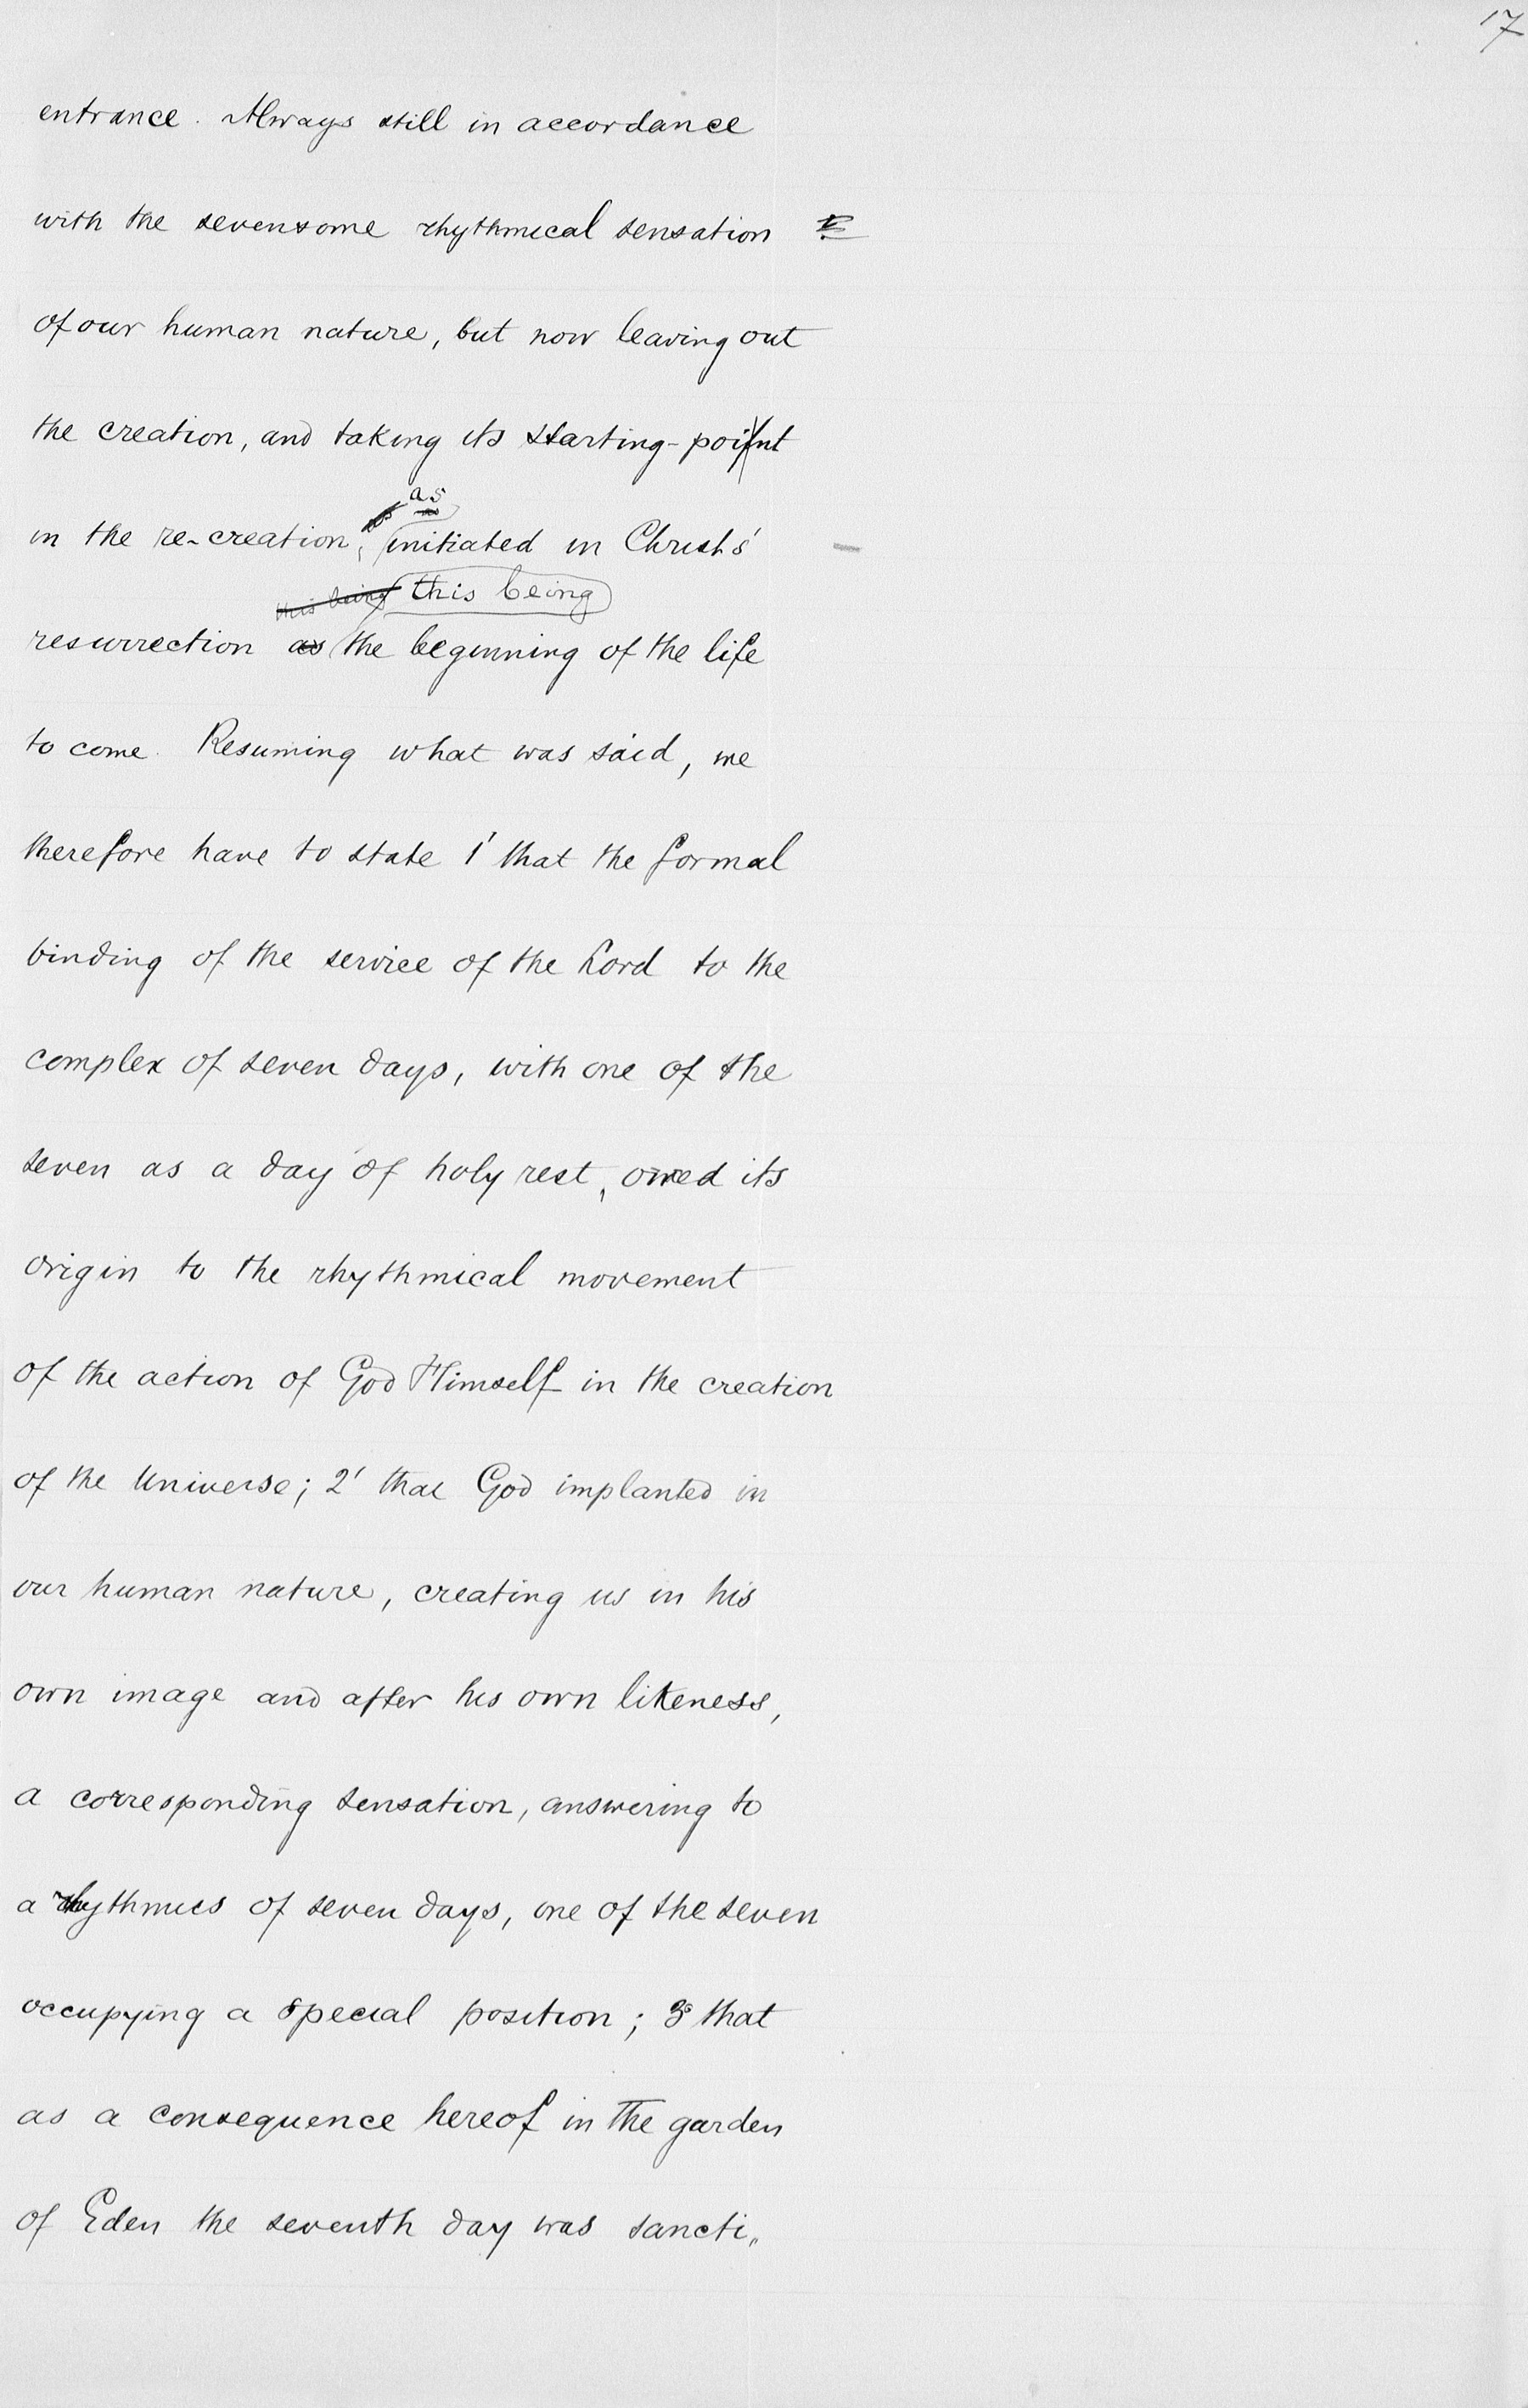 17
entrance. Always still in accordance
with the sevensome rhythmical sensation
of our human nature, but now leaving out
the creation, and taking its starting-point
as
in the re-creation, initiated in Christ's
this being this being
resurrection as the beginning of the life
to come. Resuming what was said, we
therefore have to state 1' that the formal
binding of the service of the Lord to the
complex of seven days, with one of the
seven as a day of holy rest, owed its
origin to the rhythmical movement
of the action of God Himself in the creation
of the Universe; 2' that God implanted in
our human nature, creating us in his
own image and after his own likeness,
a corresponding sensation, answering to
a rhythmics of seven days, one of the seven
occupying a special position; 3° that
as a consequence hereof in the garden
of Eden the seventh day was sancti„